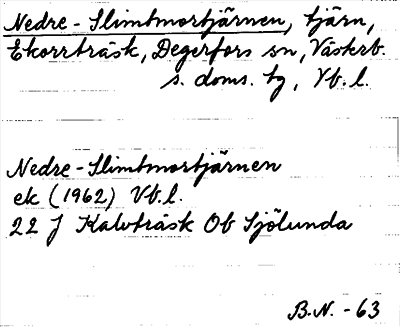 Nedre-Slimtmortjärnen, tjärn,
Ekorrträsk, Degerfors sn, Västerb.
s. doms. tg, Vb. l.
Nedre-Slimtmortjärnen
ek (1962) Vb. l.
22 J Kalvträsk Ob Sjölunda
B.N. -63